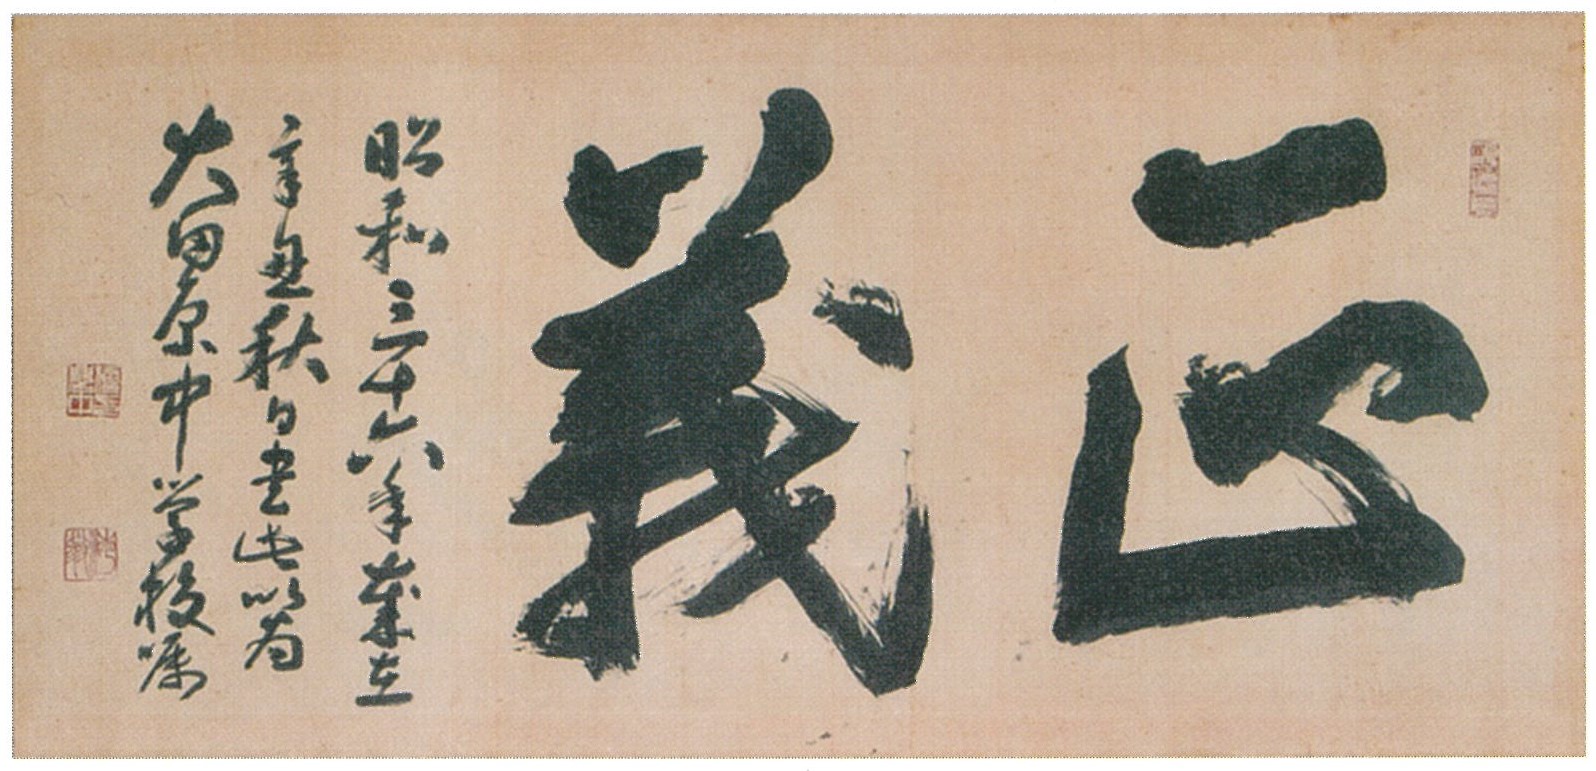 正義
昭和三十六年歳在
辛丑秋日書此以為
大田原中学校嘱